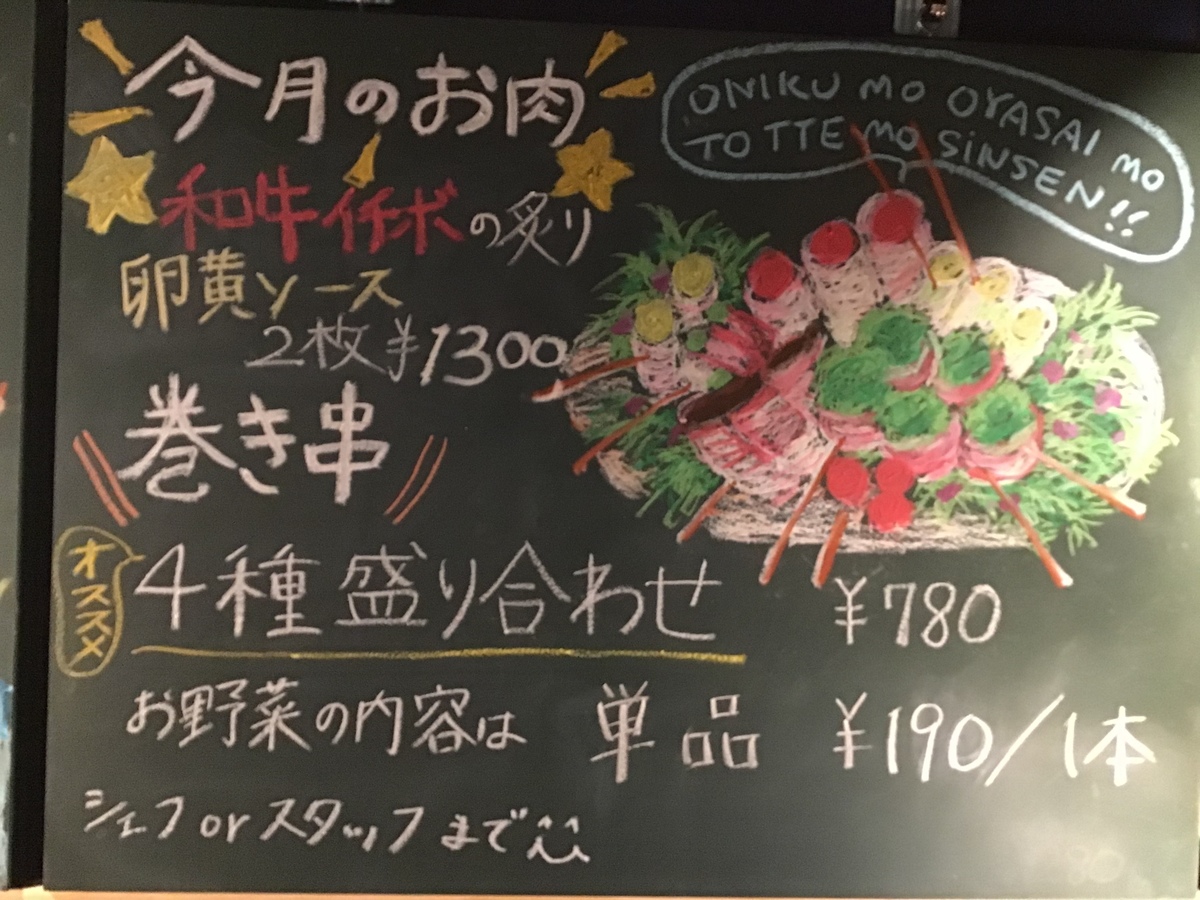 今月のお肉
ONIKU MO OYASAI MO
TO TTE MO SiNSEN!!
和牛イチボの炙り
卵黄ソース
2枚¥1300
巻き串
オススメ
4種盛り合わせ ¥780
お野菜の内容は 単品 ¥190/1本
シェフorスタッフまで